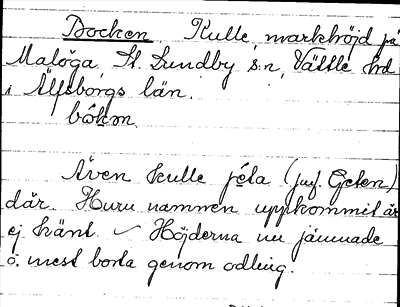 Bocken. Kulle, markhöjd på
Malöga, St. Lundby s:n, Vättle hrd
i Älfsborgs län.
båkɔn.
Även kulle jéta (jmf. Geten)
där. Huru namnen uppkommit är
ej känt ~ Höjderna nu jämnade
o. mest borta genom odling.